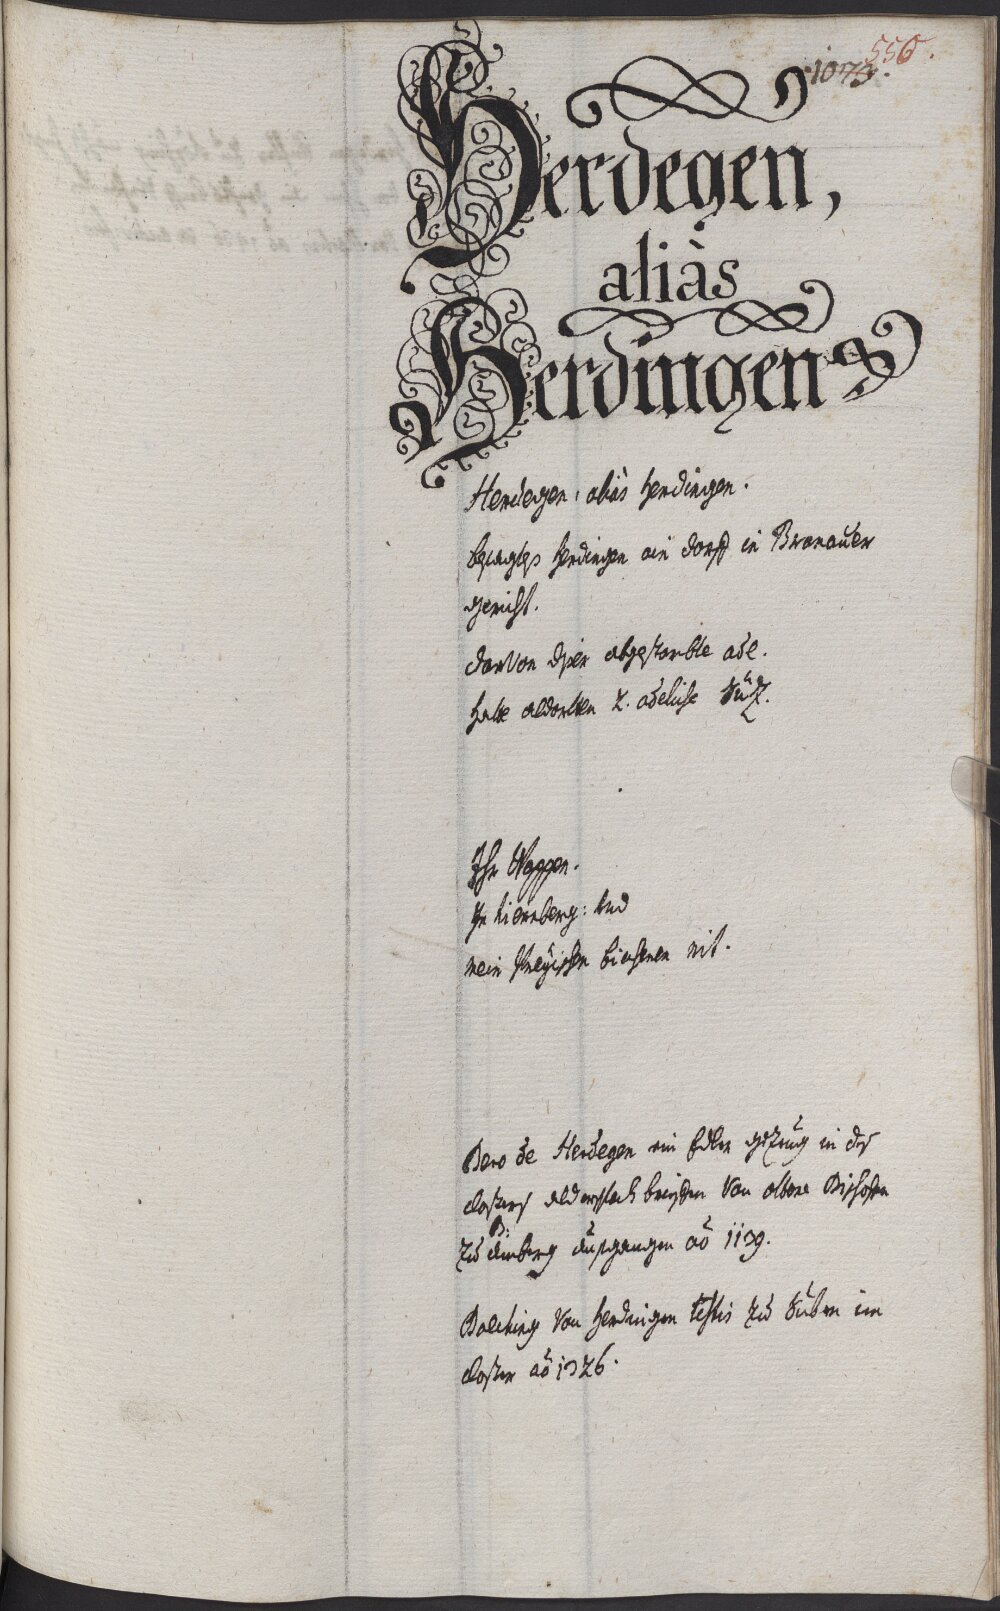 556.
1073.
Herdegen,
aliàs
Herdingen
Herdegen, aliàs Herdingen.
Herdingen ein dorff in Branauer
gericht.
darvon diser abgestorbte adl.
hate aldorten 2. adeliche Siz.
Ihr Wappen.
In Liernberg: und
mein Preÿischen biecheren nit.
Bero de Herdegen ein Edler gezeug in des
closters alderspach brieffen von Bischoffen
zu Bamberg ausgangen aõ 1139.
von Herdingen testis zu Suben im
closter aõ 1326.